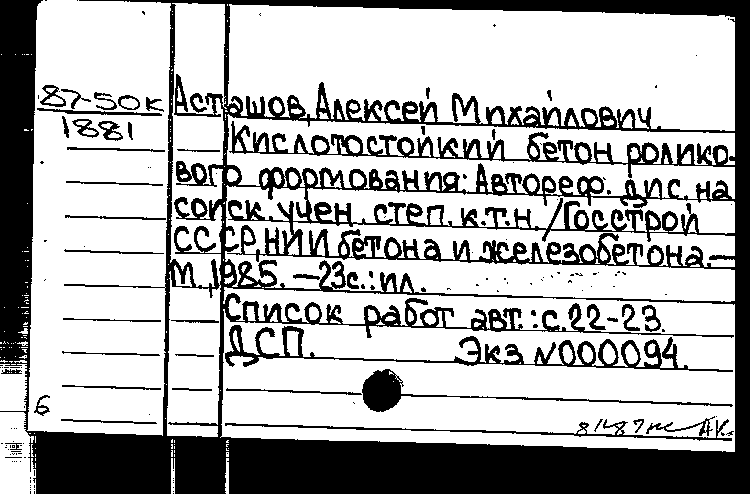 87-50к Асташов, Алексей Михайлович.
1881 Кислотостойкий бетон ролико-
вого формования: Автореф. дис. на
соиск. учен. степ. к.т.н. /Госстрой
СССР, НИИ бетона и железобетона.—
М., 1985. — 23с.: ил.
Список работ авт.: с.22-23.
ДСП. Экз №000094.
6